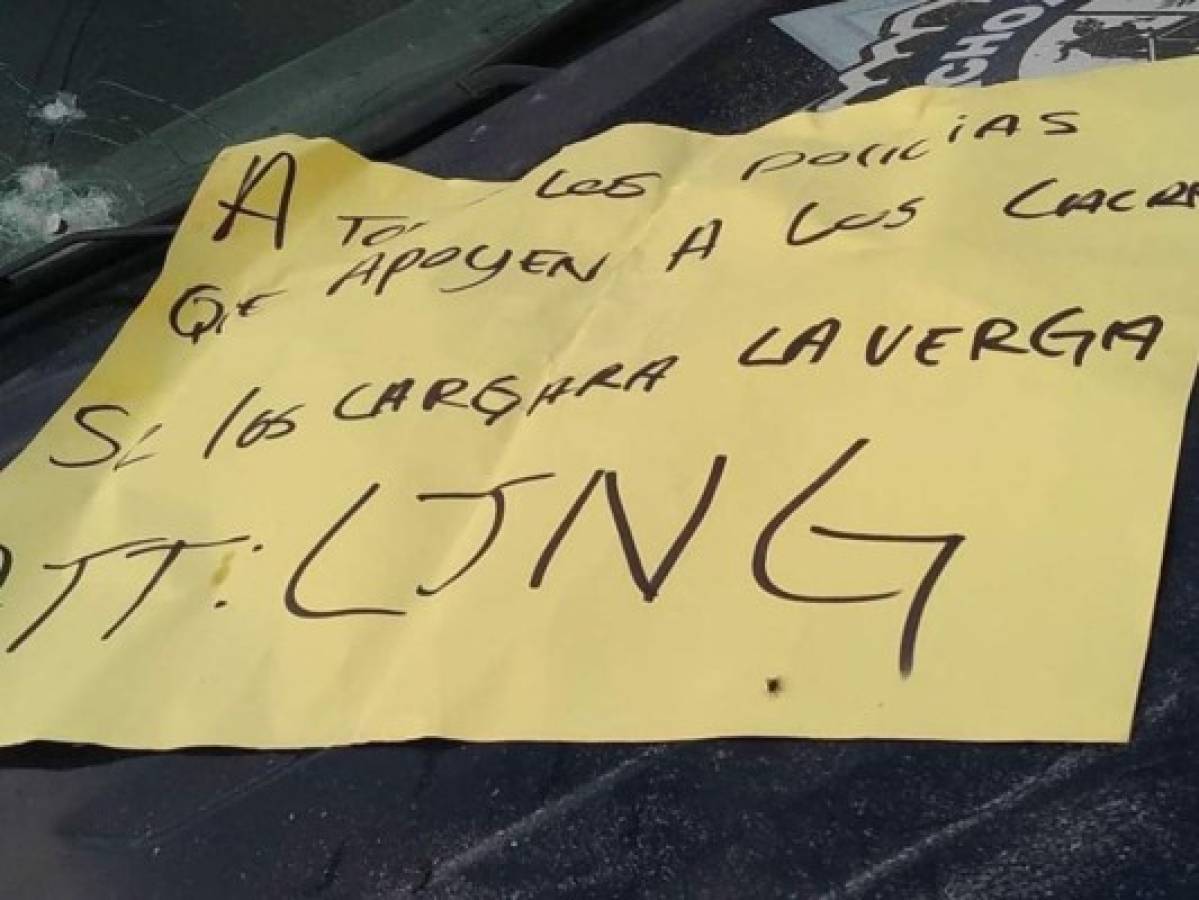 CHO
A TO LOS POLICIAS
QUE APOYEN A LOS LACRA
SE LOS CARGARA LA VERGA
ATT: CJNG